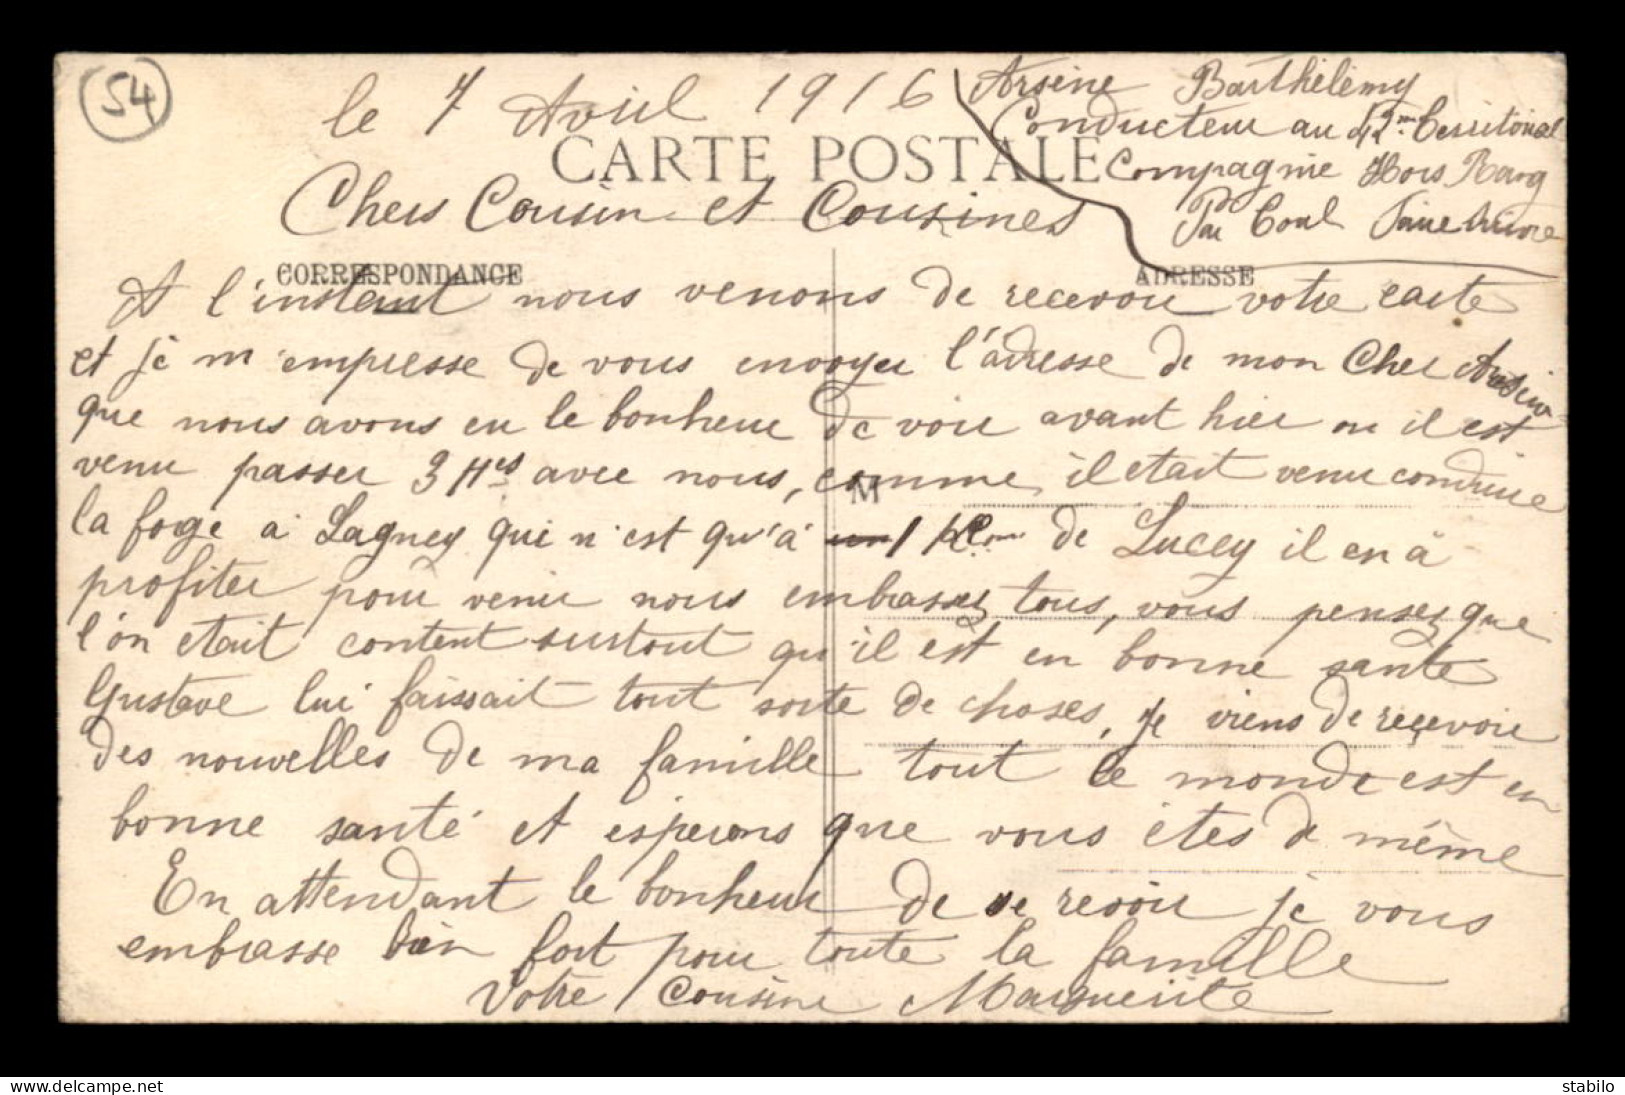 54
le 7 Avril 1916
Arsène Barthélémy
Conducteur au 42me Territorial
Compagnie Hors Rang
Par Toul
CARTE POSTALE
Chers Cousin et Cousines
CORRESPONDANCE
ADRESSE
A l'instant nous venons de recevoir votre carte
et je m'empresse de vous envoyer l'adresse de mon Cher Arsène
que nous avons eu le bonheur de voir avant hier ou il est
venu passer 3 Hes avec nous, comme il etait venu conduire
M
la forge a Lagney qui n'est qu'à 1 Klom de Lucey il en à
profiter pour venir nous embrasser tous, vous pensez que
l'on etait content surtout qu'il est en bonne sante
Gustave lui faissait tout sorte de choses, je viens de recevoir
des nouvelles de ma famille tout le monde est en
bonne santé et esperons que vous étes de même
En attendant le bonheur de se revoir je vous
embrasse bien fort pour toute la famille
Votre Cousine Marguerite
delcampe.net
stabilo